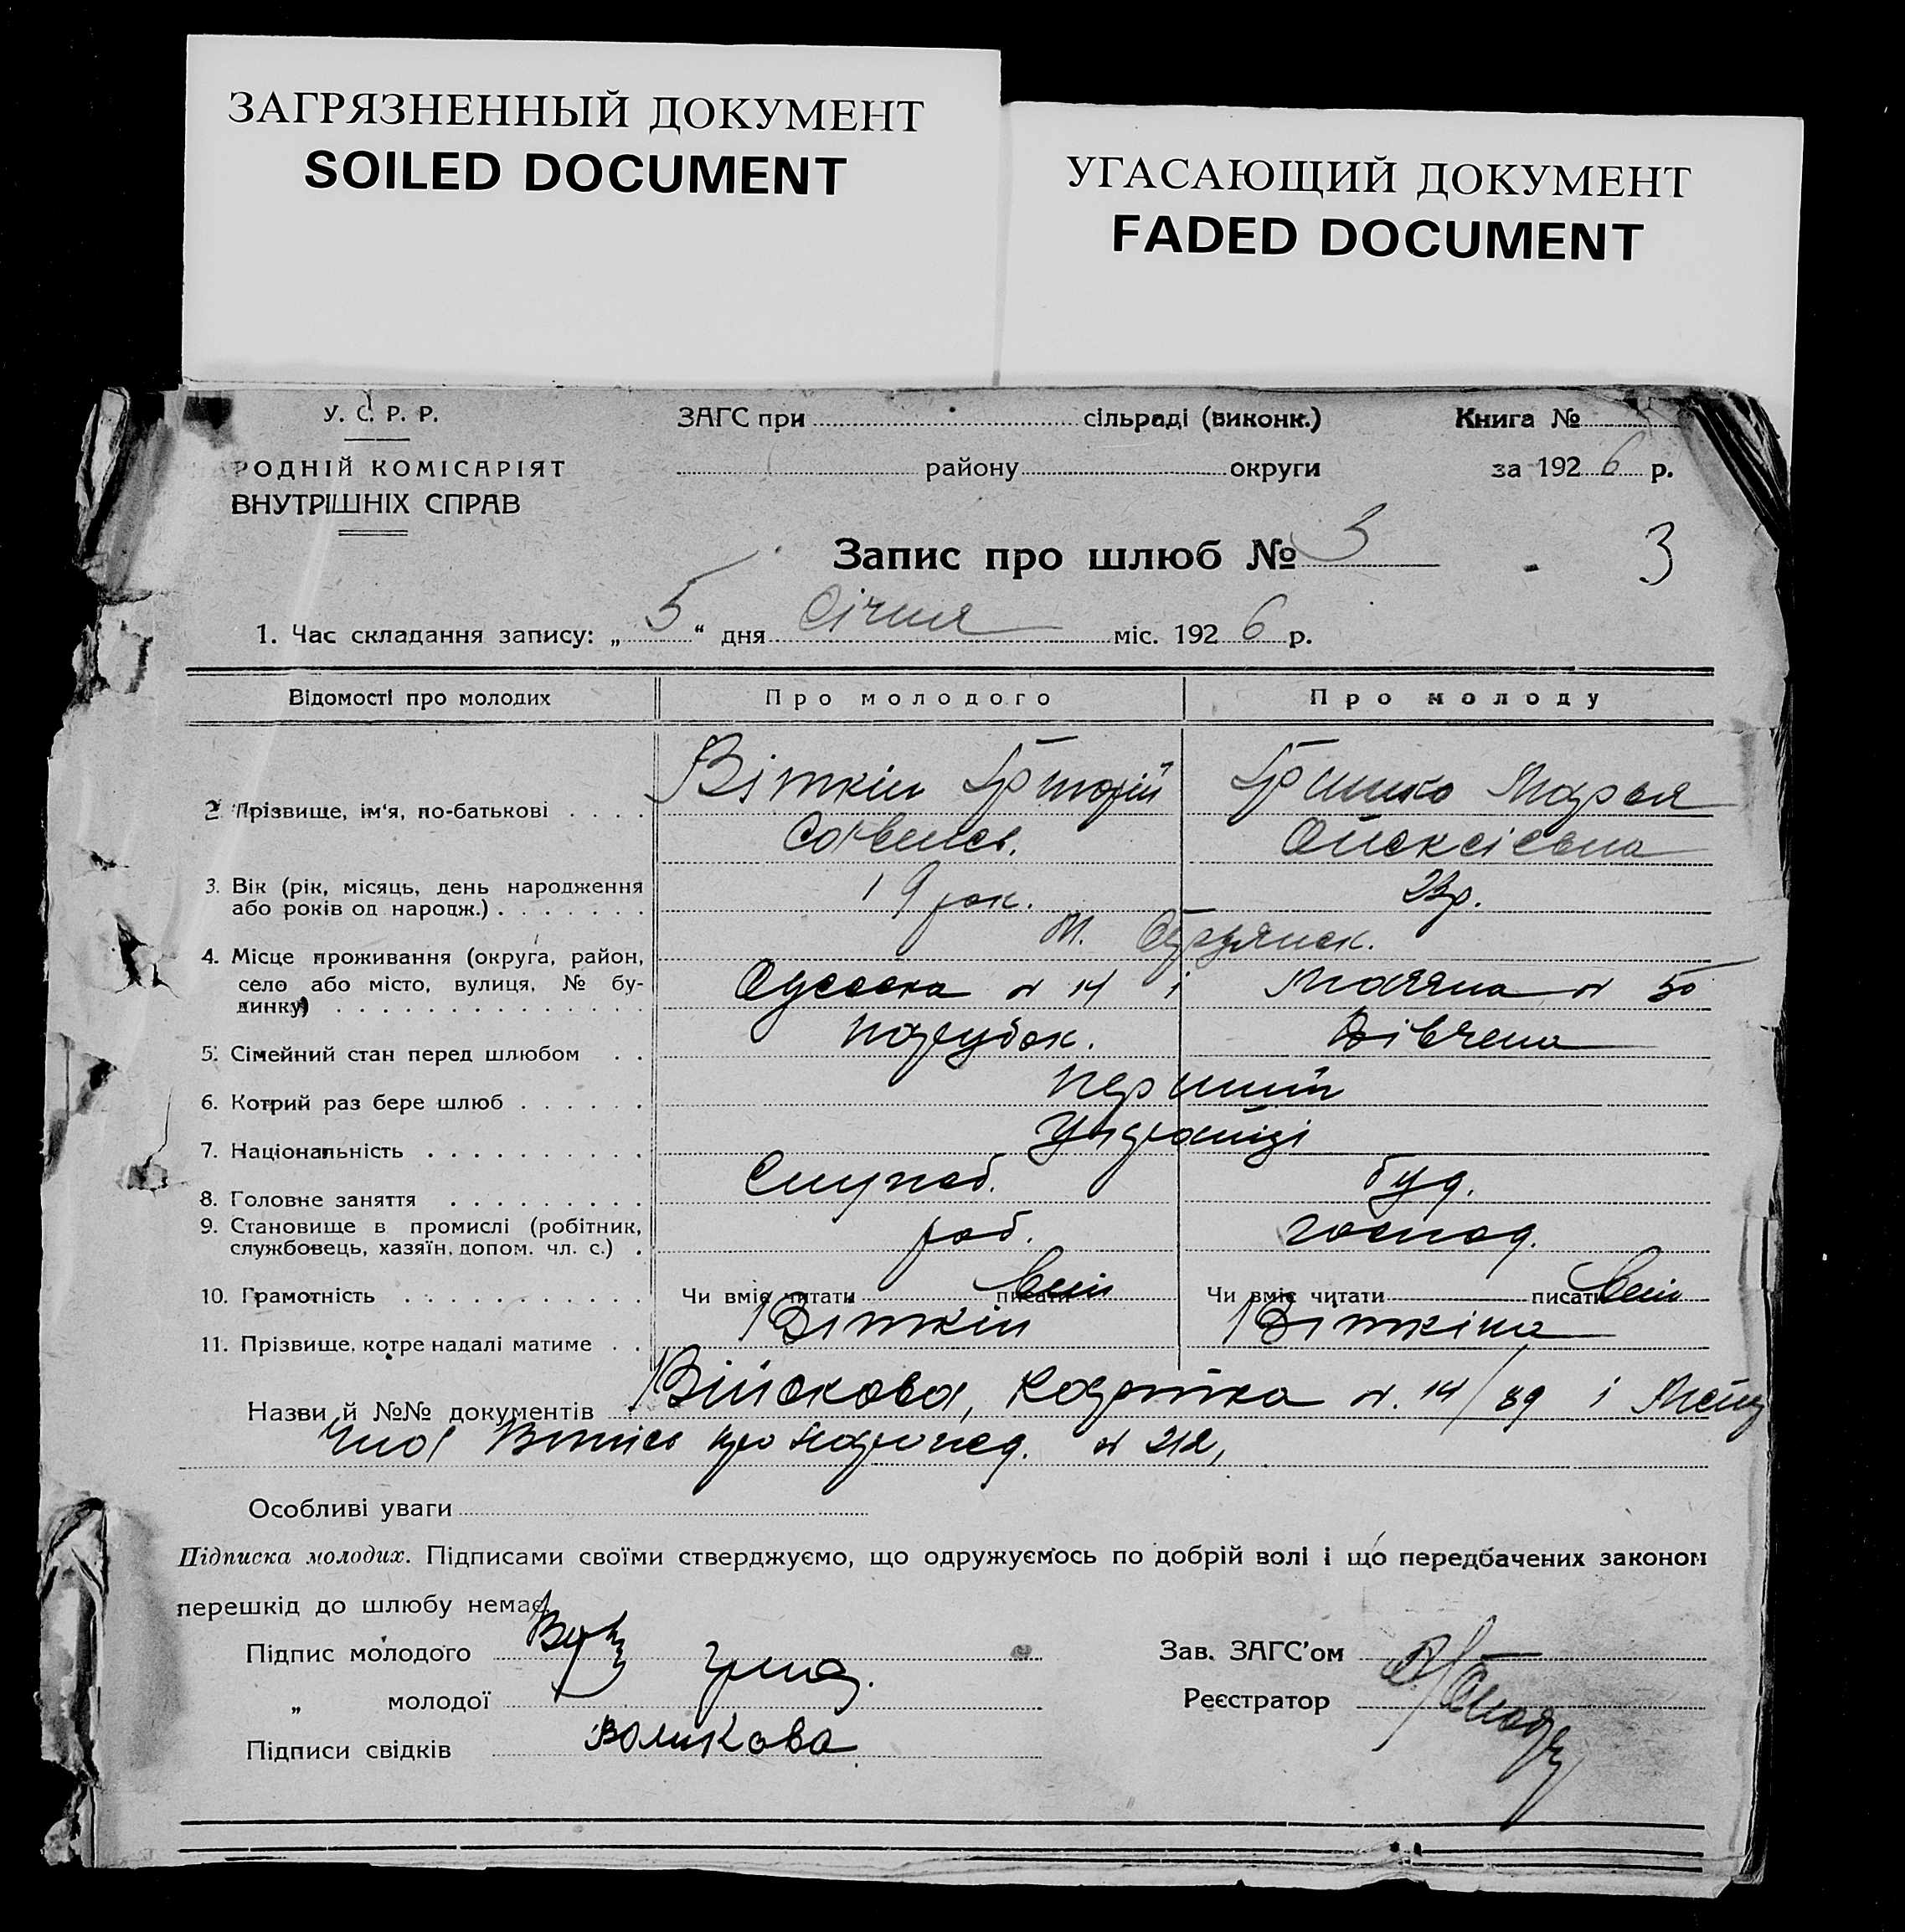 ЗАГРЯЗНЕННЫЙ ДОКУМЕНТ
SOILED DOCUMENT
УГАСАЮЩИЙ ДОКУМЕНТ
FADED DOCUMENT
У. С. Р. Р.
ЗАГС при сільраді (виконк.)
Книга №
РОДНІЙ КОМІСАРІЯТ
району округи
за 1926 р.
ВНУТРІШНІХ СПРАВ
Запис про шлюб № 3
3
1. Час складання запису: „5“ дня Січня міс. 1926 р.
Відомості про молодих Про молодого Про молоду
2. Прізвище, ім'я, по-батькові . . . . Віткін Григорій Гринко Марья
Олексієвна
3. Вік (рік, місяць, день народження
або років од народж.) . . . . . . . 19 рок. 23р.
М.
4. Місце проживання (округа, район,
село або місто, вулиця, № бу-
динку) . . . . . . . . . . . . . . Одеська № 14 і № 50
5. Сімейний стан перед шлюбом . . парубок. Дівчена
6. Котрий раз бере шлюб . . . . . . перший
7. Національність . . . . . . . . . . Українці
8. Головне заняття . . . . . . . . . Служб. буд.
9. Становище в промислі (робітник,
службовець, хазяїн, допом. чл. с.) . роб. господ.
10. Грамотність . . . . . . . . . . . Чи вміє читати писати Вміі Чи вміє читати писати Вміі
11. Прізвище, котре надалі матиме . . Віткін Віткіна
Назви й №№ документів Війскова, Картка № 14/89 і
Виписъ про народ. № 212,
Особливі уваги
Підписка молодих. Підписами своїми стверджуємо, що одружуємось по добрій волі і що передбачених законом
перешкід до шлюбу немає.
Підпис молодого
Зав. ЗАГС'ом
„ молодої
Реєстратор
Підписи свідків Воликова